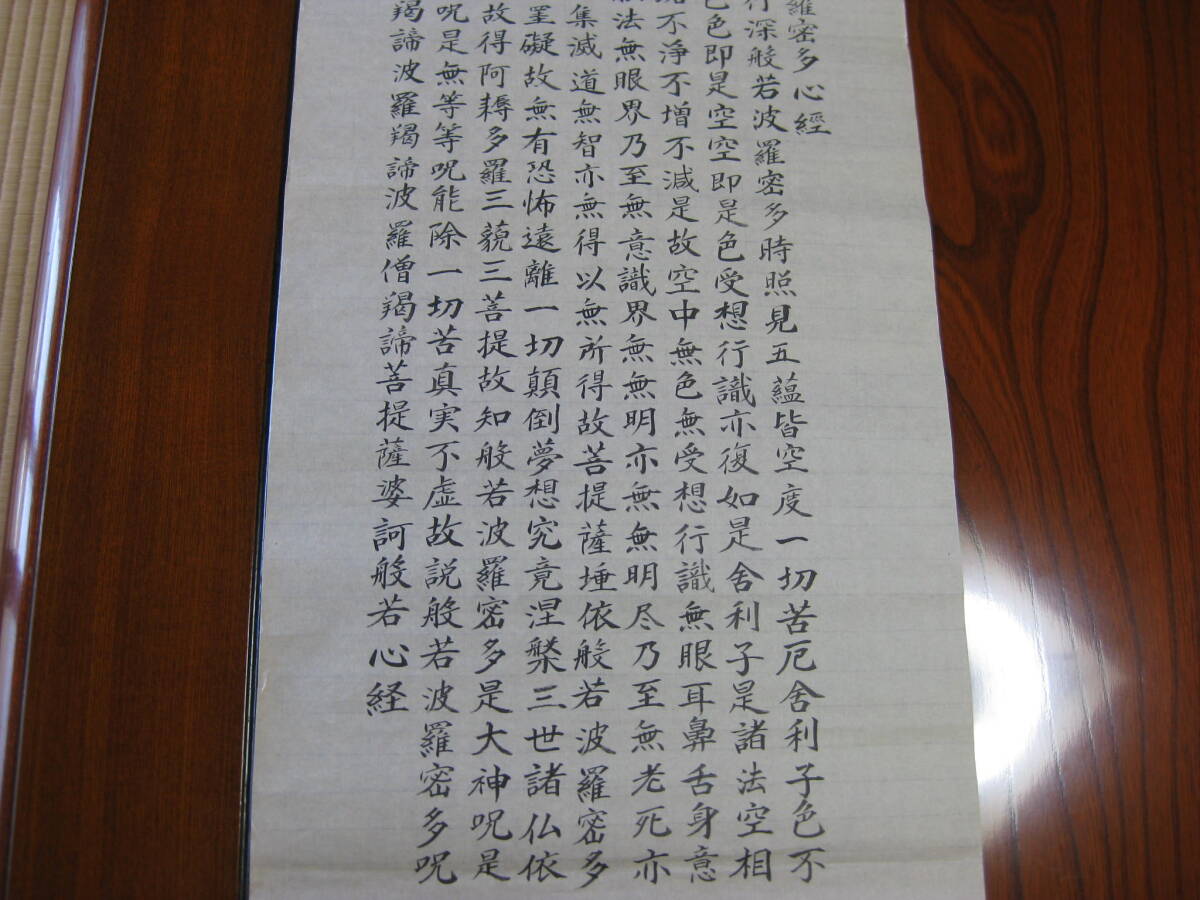 羅密多心經
行深般若波羅密多時照見五蘊皆空度一切苦厄舍利子色不
色色即是空空即是色受想行識亦復如是舍利子是諸法空相
垢不淨不増不減是故空中無色無受想行識無眼耳鼻舌身意
法無眼界乃至無意識界無無明亦無無明尽乃至無老死亦
集滅道無智亦無得以無所得故菩提薩埵依般若波羅密多
罣礙故無有恐怖遠離一切顛倒夢想究竟涅槃三世諸仏依
故得阿耨多羅三藐三菩提故知般若波羅密多是大神呪是
呪是無等等呪能除一切苦真実不虚故説般若波羅密多呪
羯諦波羅羯諦波羅僧羯諦菩提薩婆訶般若心経